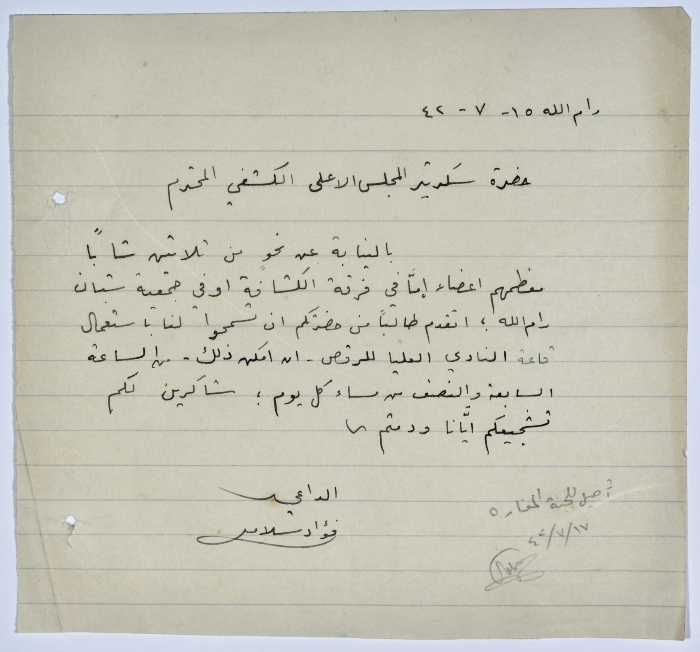 رام الله ١٥- ٧ - ٤٢
حضرة سكرتير المجلس الاعلى الكشفي المحترم
بالنيابة عن نحوٍ من ثلاثين شابًا
معظمهم اعضاء إمَّا في فرقة الكشافة او في جمعية شبان
رام الله ؛ اتقدم طالبًا من حضرتكم ان تسمحوا لنا باستعمال
قاعة النادي العليا للرقص - ان امكن ذلك - من الساعة
السابعة والنصف من مساء كل يوم ؛ شاكرين لكم
تشجيعكم ايَّانا ودمتم
الداعي
فؤاد سلامه
للجنة
٤٢/٧/١٧